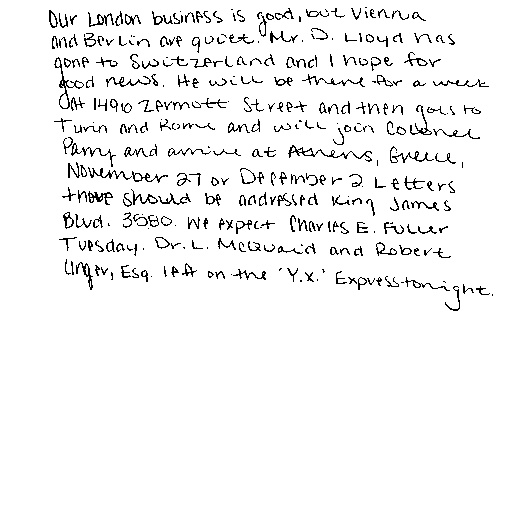 Our London business is good, but Vienna
and Berlin are quiet. Mr. D. Lloyd has
gone to Switzerland and I hope for
good news. He will be there for a week
at 1490 Zermott Street and then goes to
Turin and Rome and will join Colonel
Parry and arrive at Athens, Greece,
November 27 or December 2. Letters
there should be addressed King James
Blvd. 3580. We expect Charles E. Fuller
Tuesday. Dr. L. McQuaid and Robert
Unger, Esq. left on the 'Y.X.' Express tonight.